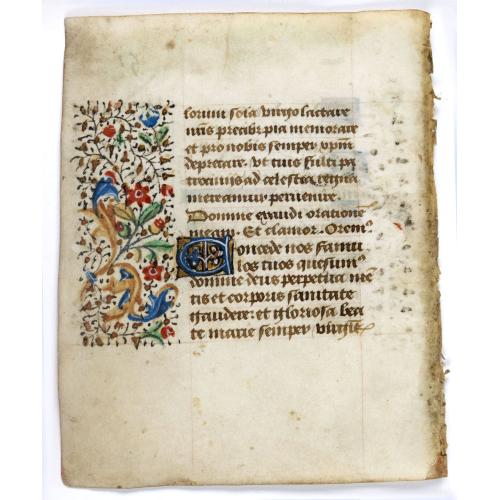 lorum sola virgo lactare
nris precib₉ pia memorare
et pro nobis semper xpm
deprecare. Ut tuis fulti pa
trociniis ad celestia regna
mereamur pervenire.
Domine exaudi oratione
meam. Et clamor. Orem⁹
Concede nos famu
los tuos quesum⁹
domine deus perpetua me
tis et corporis sanitate
gaudere: et gloriosa bea
te marie semper virgis